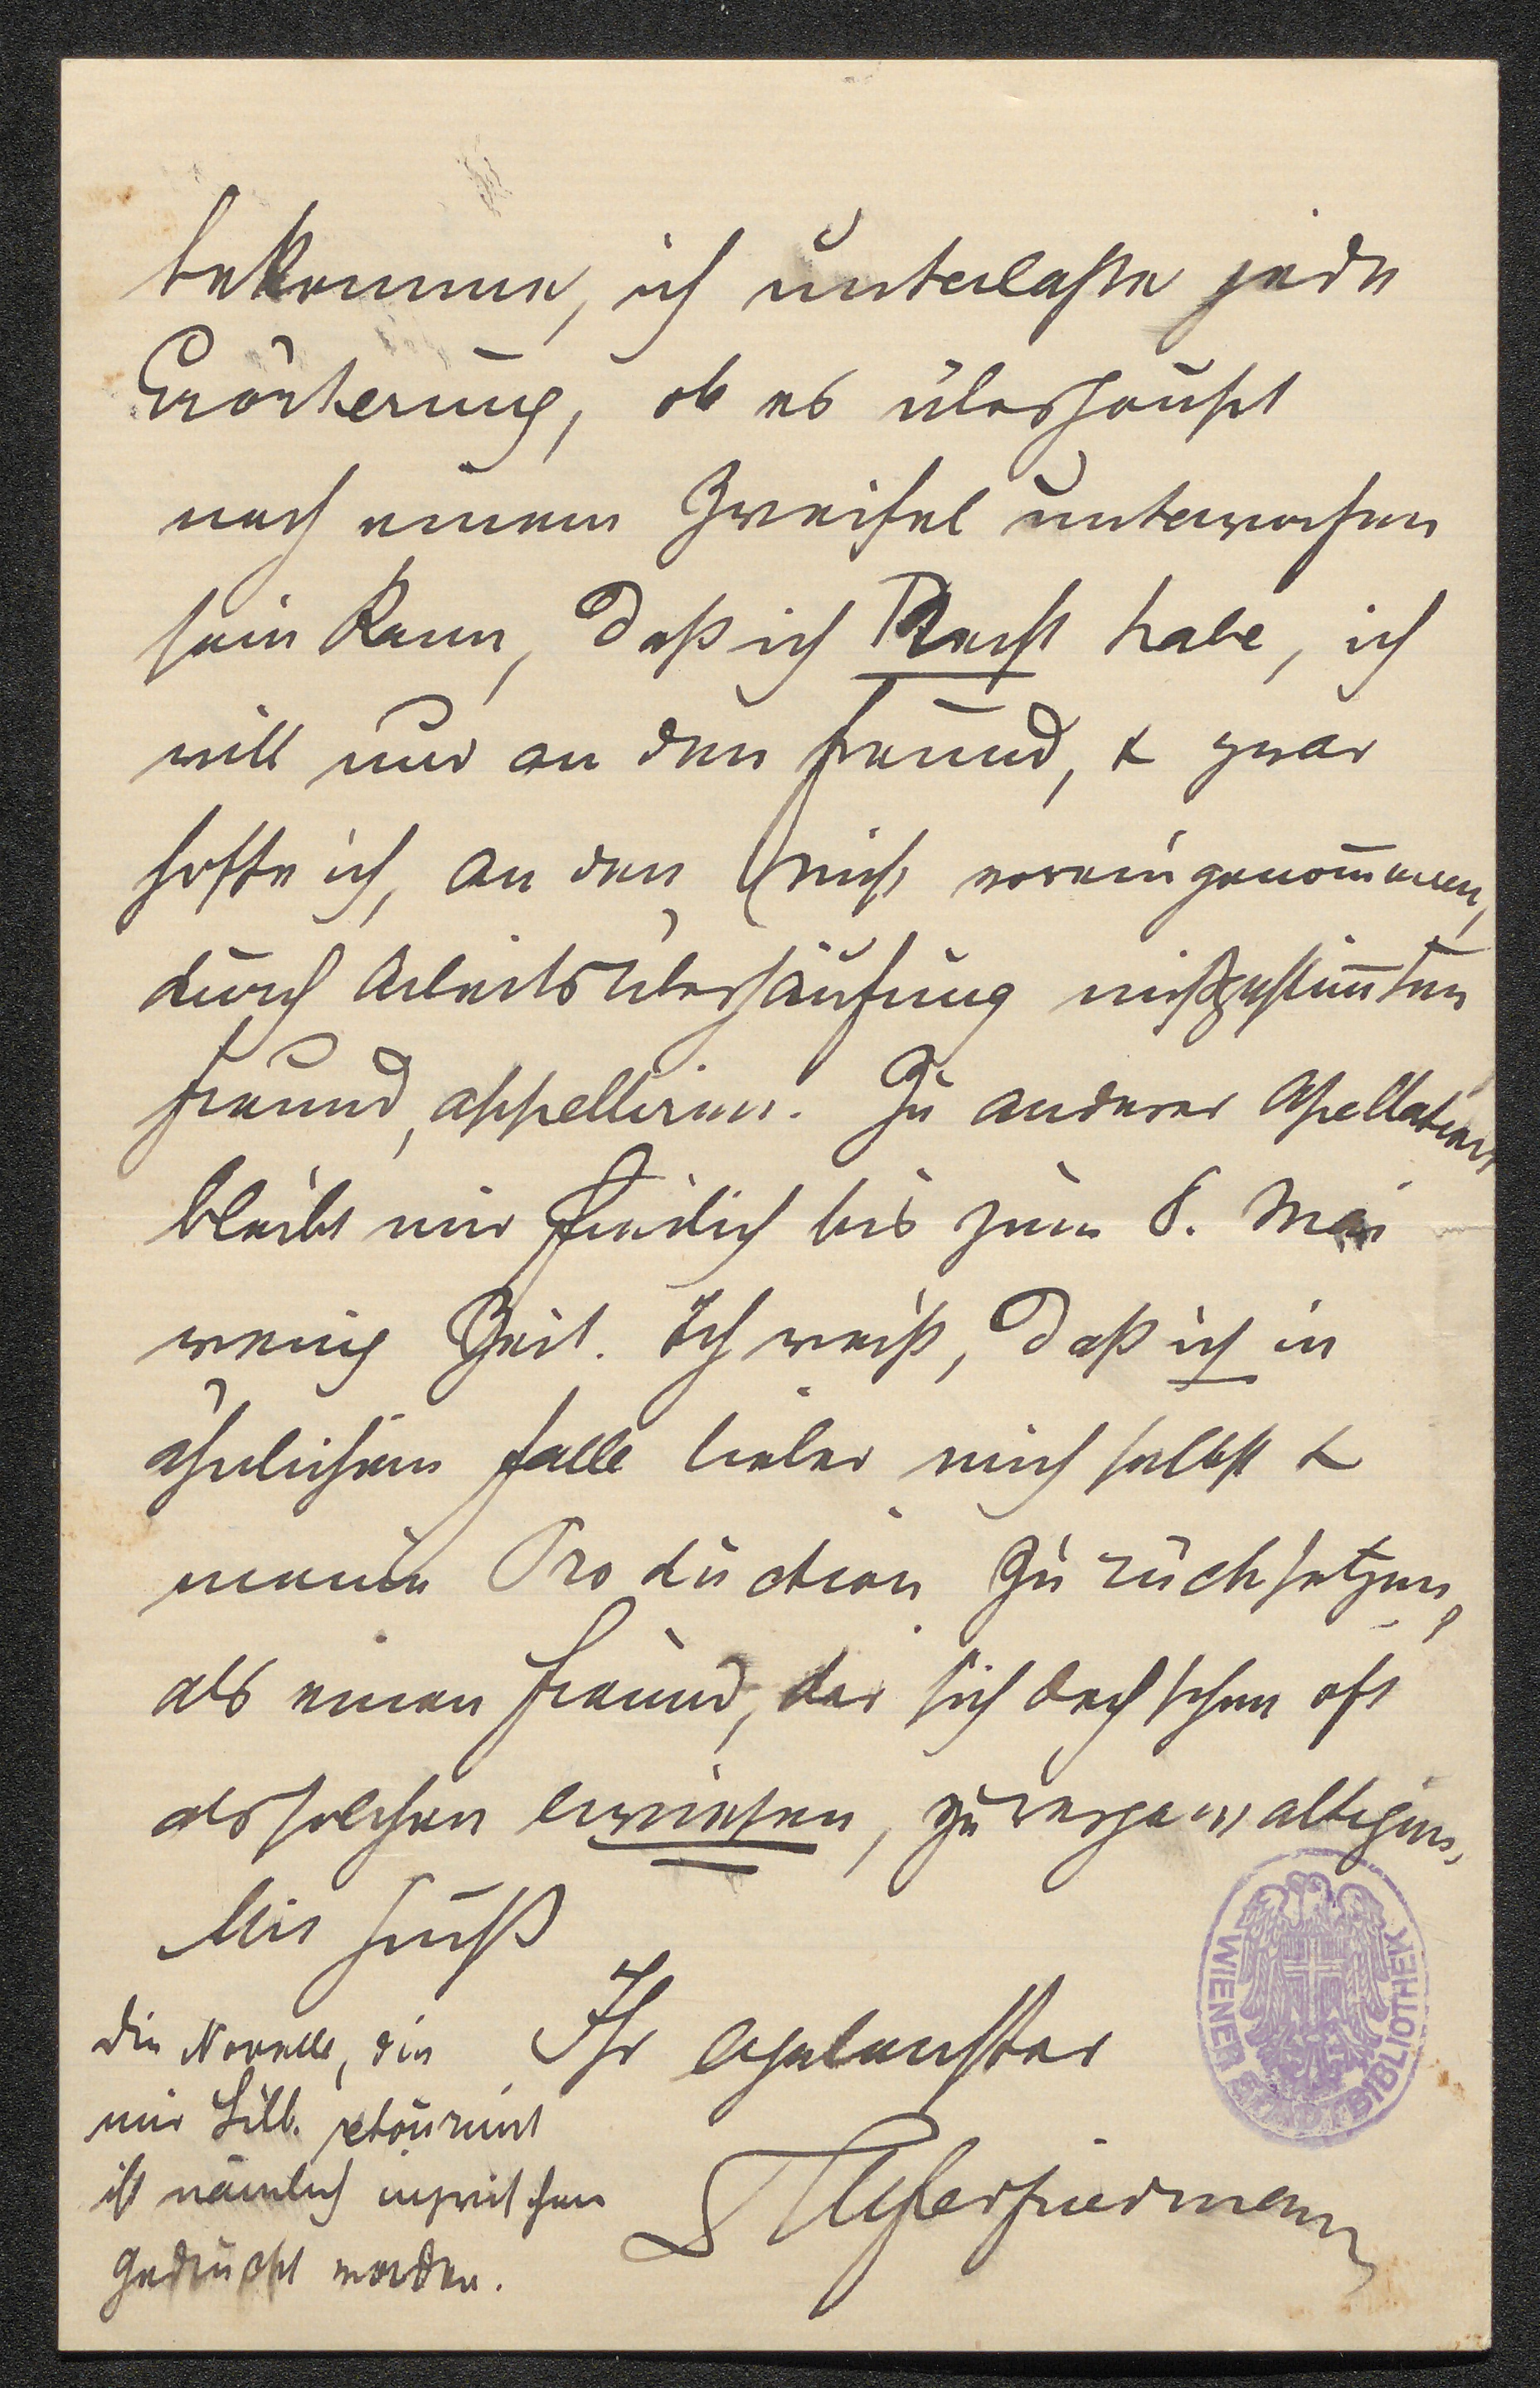 bekomme, ich unterlaße jede
Erörterung, ob es überhaupt
noch einem Zweifel unterworfen
sein kann, daß ich Recht habe, ich
will nur an den Freund, & zwar
hoffe ich, an den nicht voreingenom̄enen,
durch Arbeitsüberhäufung mißgestim̄ten
Freund, appelliren. Zu anderer Apellation
bleibt mir freilich bis zum 8. Mai
wenig Zeit. Ich weiß, daß ich in
ähnlichem Falle lieber mich selbst &
meine Production zurücksetzen,
als einen Freund, der sich doch schon oft
als solchen erwiesen, zu vergewaltigen.
Mit Gruß
Ihr ergebenster
Die Novelle, die
mir Lilb. retournirt
ist nämlich inzwischen
gedruckt worden.
WIENER STADTBIBLIOTHEK